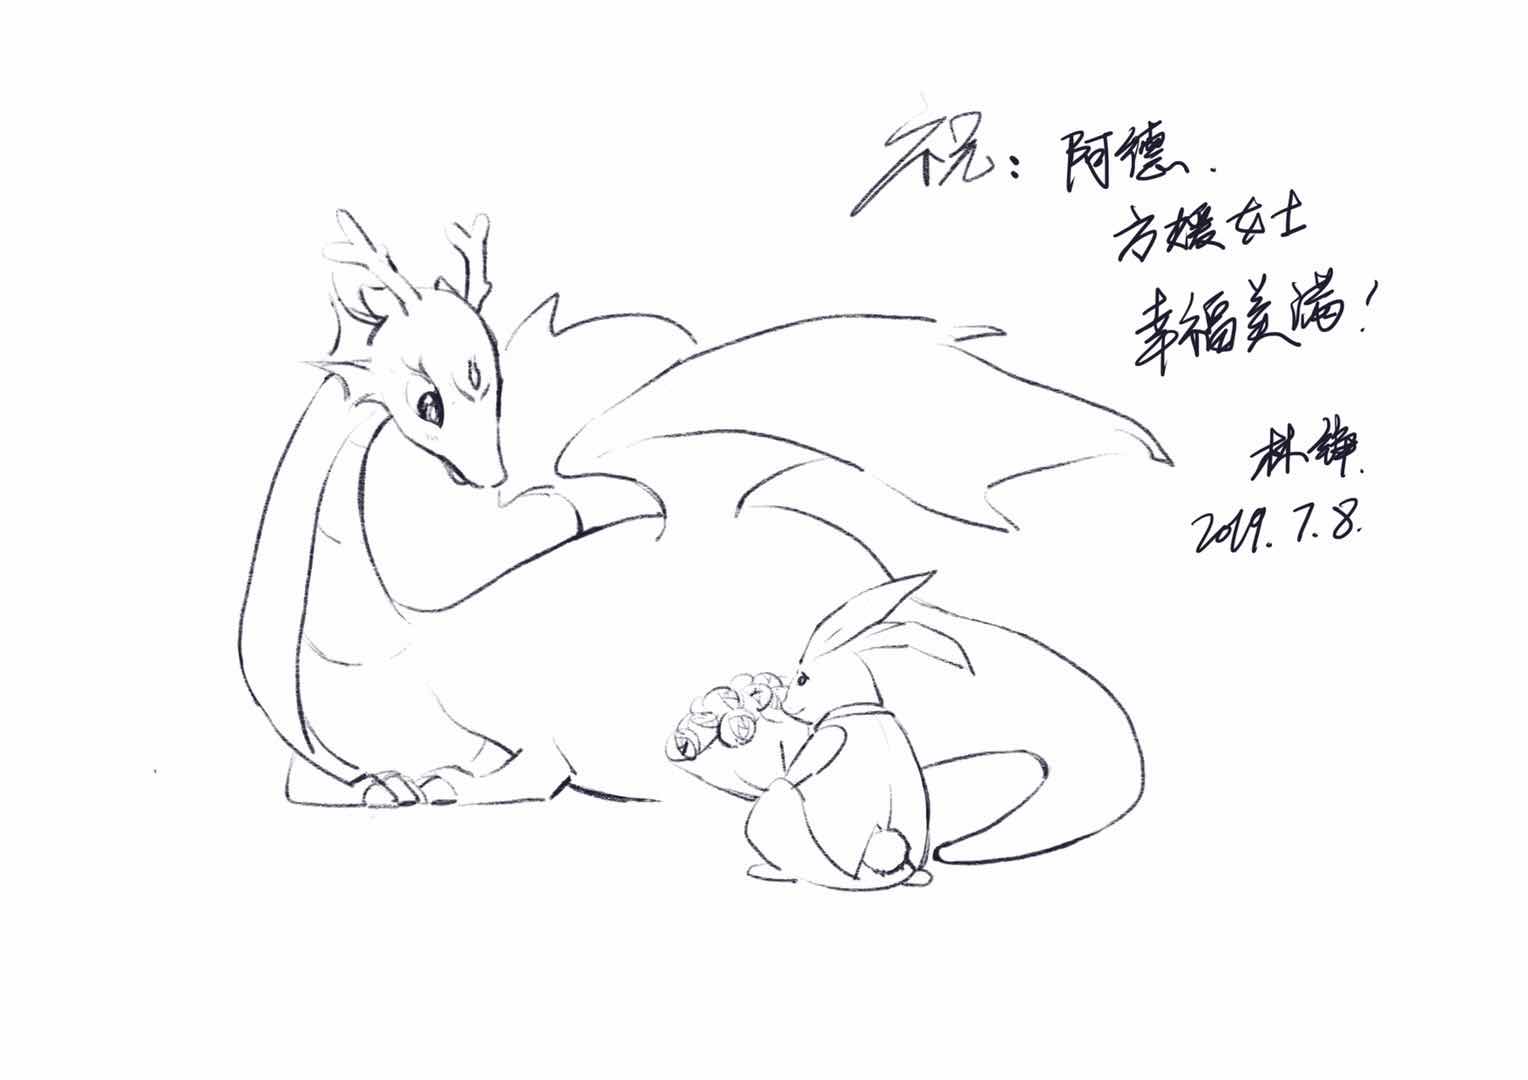 祝：阿德.
方媛女士
幸福美满！
林
2019.7.8.